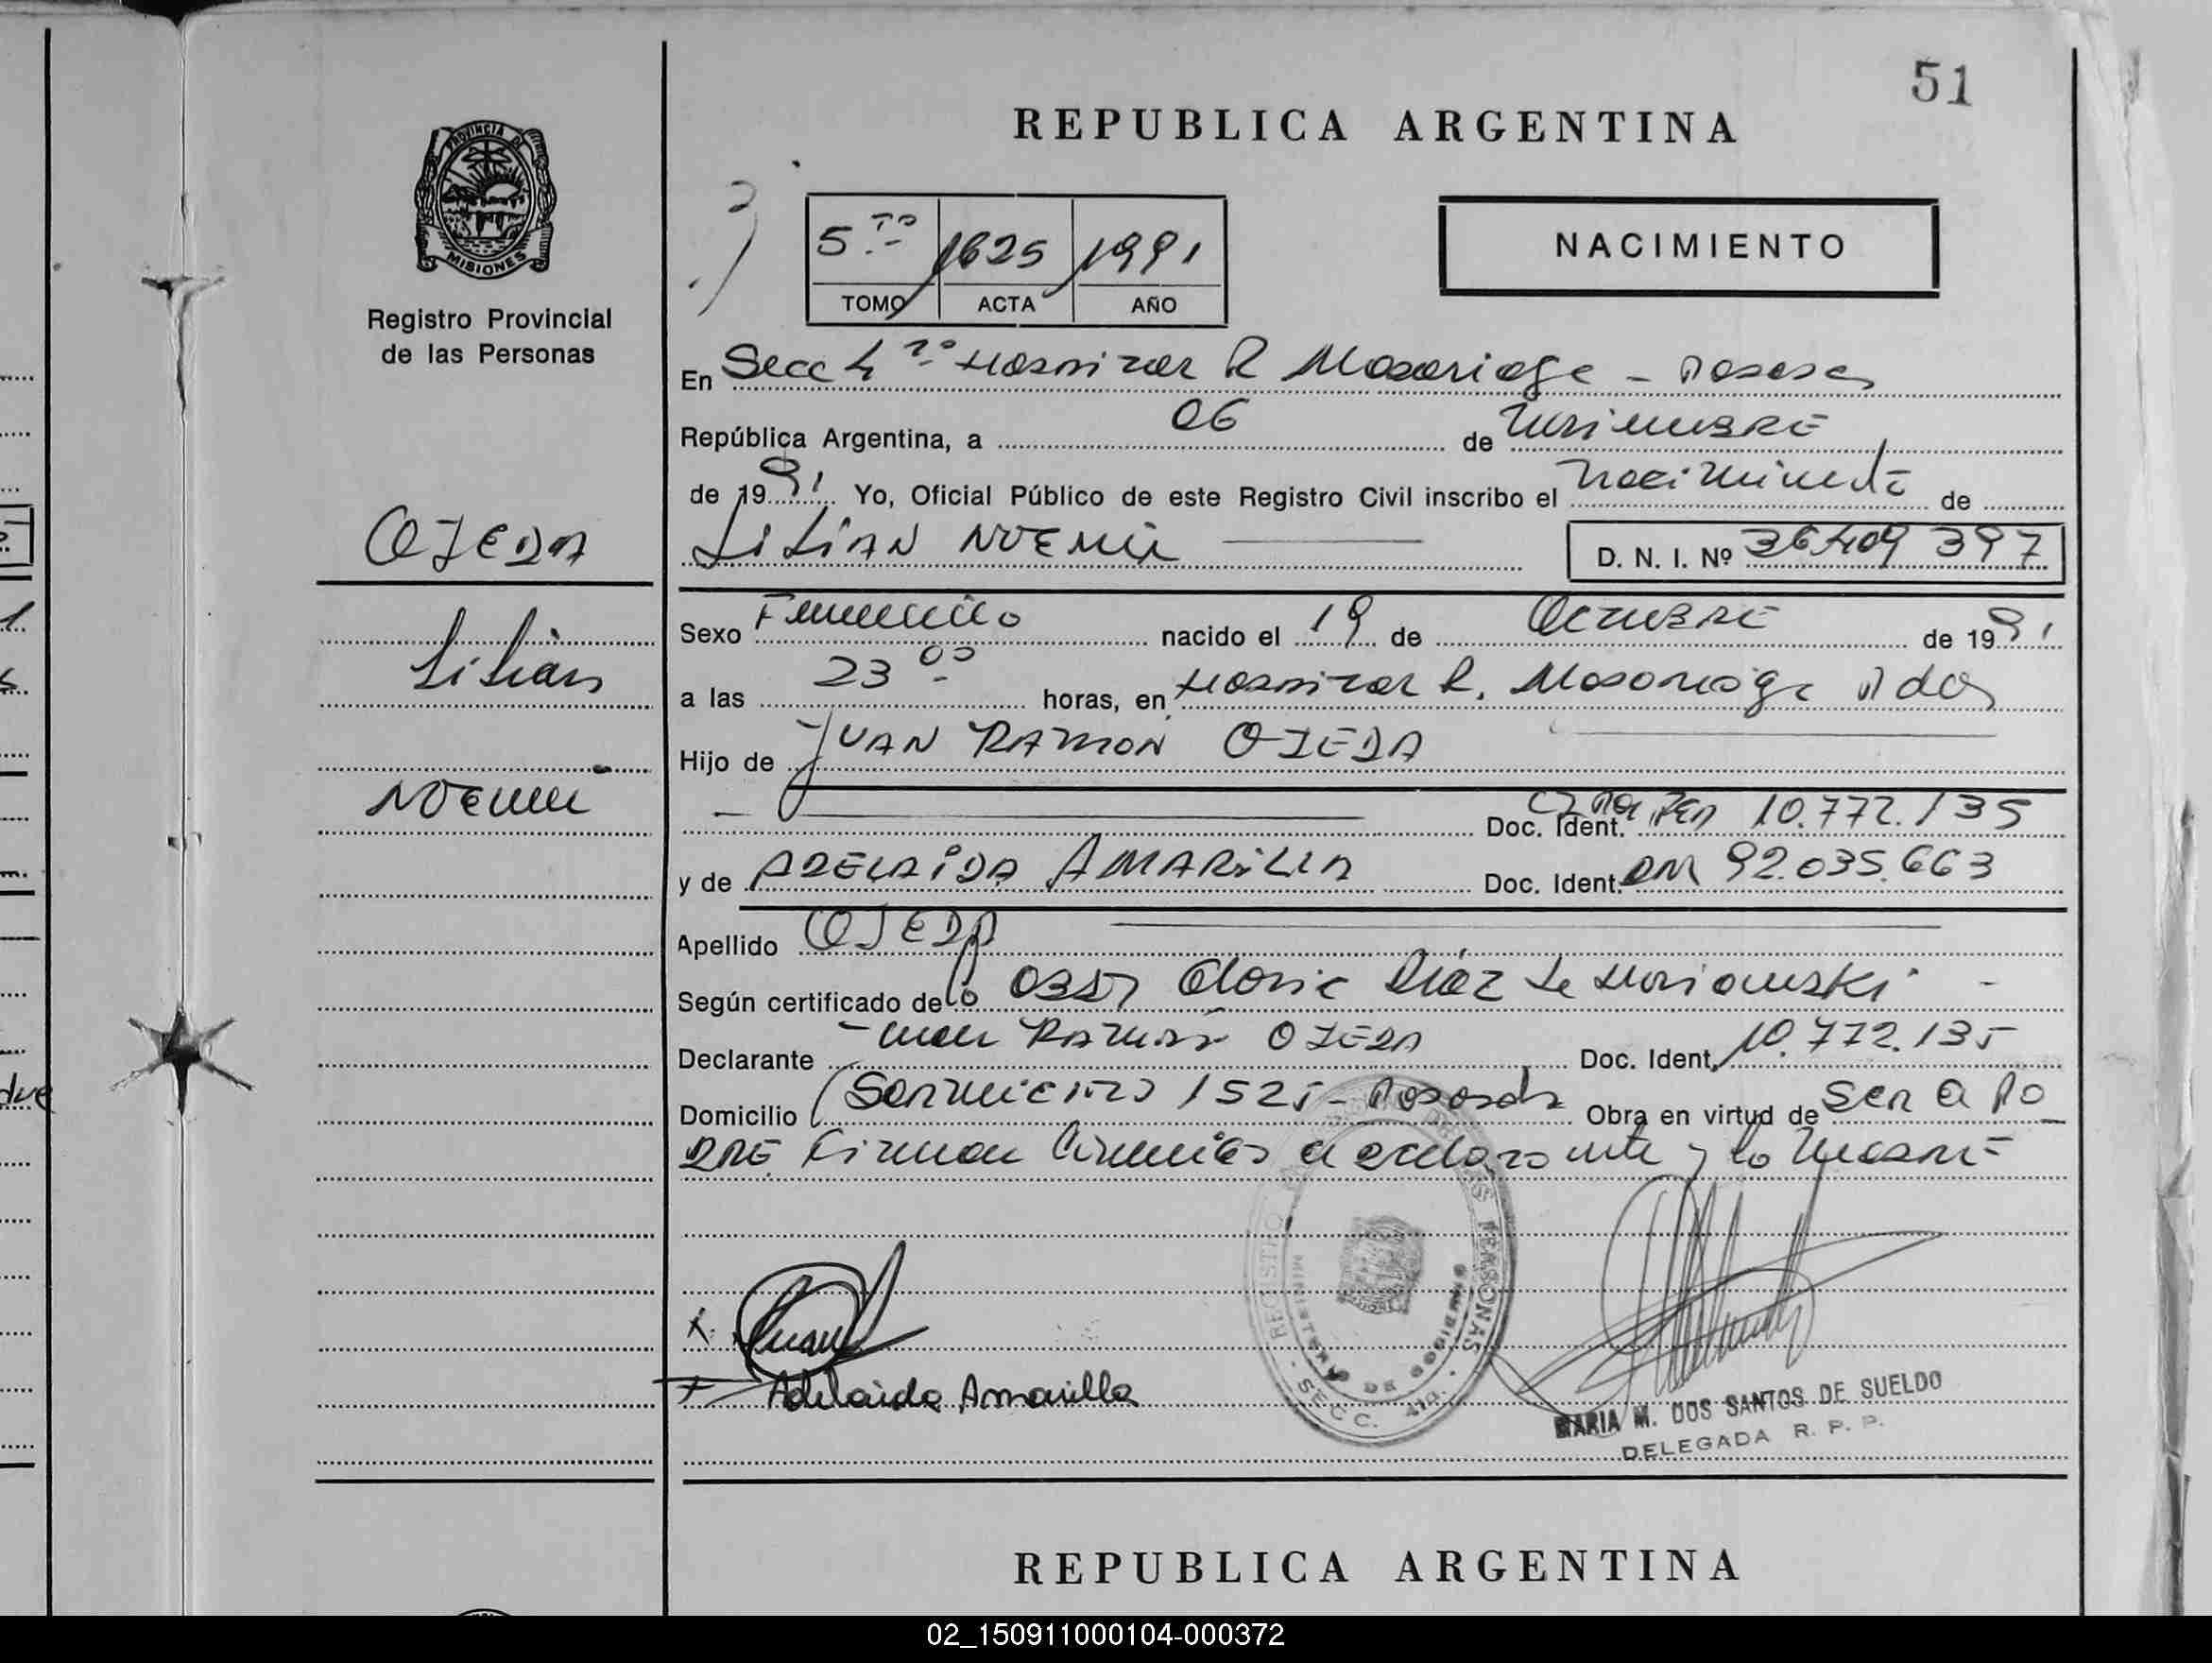 51
REPUBLICA ARGENTINA
PROVINCIA DE
MISIONES
Registro Provincial
de las Personas
5to 1625 1991
TOMO ACTA AÑO
NACIMIENTO
En Secc 4ta Hospital R Madariaga - Posadas
República Argentina, a 06 de Noviembre
de 1991 Yo, Oficial Público de este Registro Civil inscribo el Nacimiento de
LILIAN NOEMI D. N. I. Nº 36.409.397
OJEDA
Lilian
NOEMI
Sexo Femenino nacido el 19 de Octubre de 1991
a las 23 00 horas, en Hospital R. Madariaga Pdas
Hijo de JUAN RAMON OJEDA
Doc. Ident. 10.772.135
y de ADELAIDA AMARILLA Doc. Ident. DNI 92.035.663
Apellido OJEDA
Según certificado de la Díaz de
Declarante Juan Ramón OJEDA Doc. Ident. 10.772.135
Domicilio Sarmiento 1525 - Posadas Obra en virtud de ser el PA
DRE. Firman el declarante y la Madre
REGISTRO DE LAS PERSONAS
MINISTERIO DE GOBIERNO
SECC. 4ta.
Juan
Adelaida Amarilla
MARIA M. DOS SANTOS DE SUELDO
DELEGADA R. P. P.
REPUBLICA ARGENTINA
02_150911000104-000372